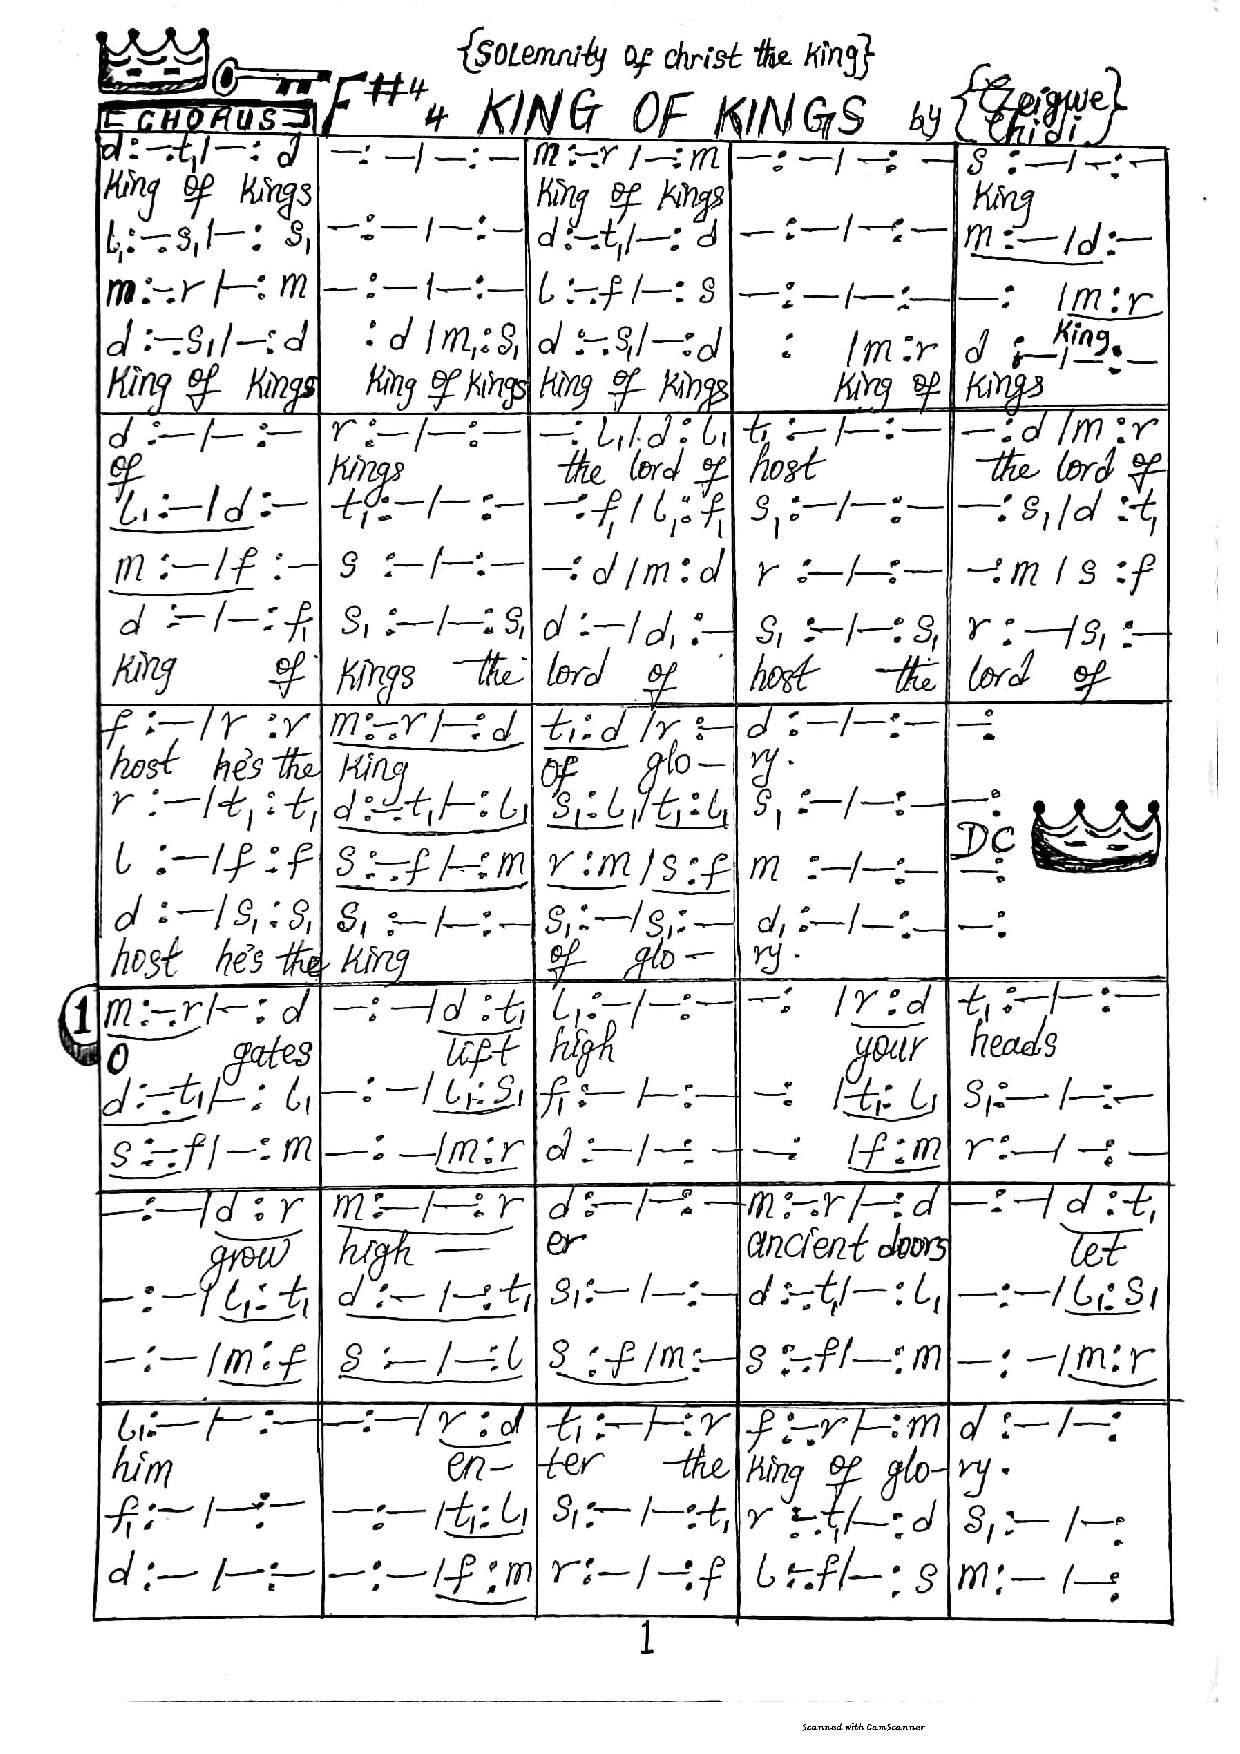 {Solemnity of christ the King}
CHORUS F# 4 4 KING OF KINGS by {Ezeigwe Chidi}
d :-.t₁/-: d | -: -/-:- | m :-.r /-:m | -: -/-: - | s :-/-:-
King of Kings | King of Kings | King
l₁:-.s₁/-: s₁ | -:-/-:- | d:-.t₁/-: d | - :-/-:- | m :-/d:-
m :-.r /-: m | -:-/-:- | l :-.f /-: s | -:-/-:- | -: /m:r
King.
d :-.s₁/-:d | : d /m₁:s₁ | d :-.s₁/-:d | : /m :r | d :-/-:-
King of Kings | King of Kings | King of Kings | King of | Kings
d :-/- :- | r :-/-:- | -: l₁/d : l₁ | t₁ :-/-:- | -:d /m :r
of | Kings | the lord of | host | the lord of
l₁ :-/d :- | t₁:-/-:- | -:f₁/l₁:f₁ | s₁:-/-:- | -: s₁/d :t₁
m :-/f :- | s :-/-:- | -: d /m :d | r :-/-:- | -:m / s :f
d :-/-:f₁ | s₁ :-/-:s₁ | d :-/d₁ :- | s₁ :-/-:s₁ | r :-/s₁ :-
King of | Kings the | lord of | host the | lord of
f :-/r :r | m:-.r/-:d | t₁:d /r :- | d :-/-:- | -:
host he's the | King | of glo- | ry.
r :-/t₁ :t₁ | d:-.t₁/-:l₁ | s₁:l₁/t₁:l₁ | s₁ :-/-:- | -:
DC
l :-/f :f | s:-.f/-:m | r :m /s :f | m :-/-:- | -:
d :-/s₁ :s₁ | s₁ :-/-:- | s₁:-/s₁:- | d₁ :-/-:- | -:
host he's the | King | of glo- | ry.
1
m:-.r/-: d | -:-/d :t₁ | l₁:-/-:- | -: /r :d | t₁ :-/-:-
O gates | lift | high | your | heads
d:-.t₁/-: l₁ | -: -/l₁:s₁ | f₁:-/-:- | -: /t₁:l₁ | s₁:-/-:-
s:-.f/-:m | -: -/m:r | d :-/-:- | -: /f :m | r:-/-:-
-:-/d : r | m:-/-: r | d:-/-:- | m:-.r/-:d | -:-/d :t₁
grow | high- | er | ancient doors | let
-:-/l₁:t₁ | d :-/-:t₁ | s₁:-/-:- | d:-.t₁/-:l₁ | -:-/l₁:s₁
-:-/m:f | s :-/-:l | s :f /m:- | s :-.f/-:m | -: -/m:r
l₁:-/-:- | -:-/r :d | t₁ :-/-:r | f :-.r/-:m | d :-/-:
him | en- | ter the | King of glo- | ry.
f₁:-/-:- | -:-/t₁:l₁ | s₁:-/-:t₁ | r :-.t₁/-:d | s₁:-/-:
d :-/-:- | -:-/f :m | r:-/-:f | l :-.f/-: s | m:-/-:
1
Scanned with CamScanner